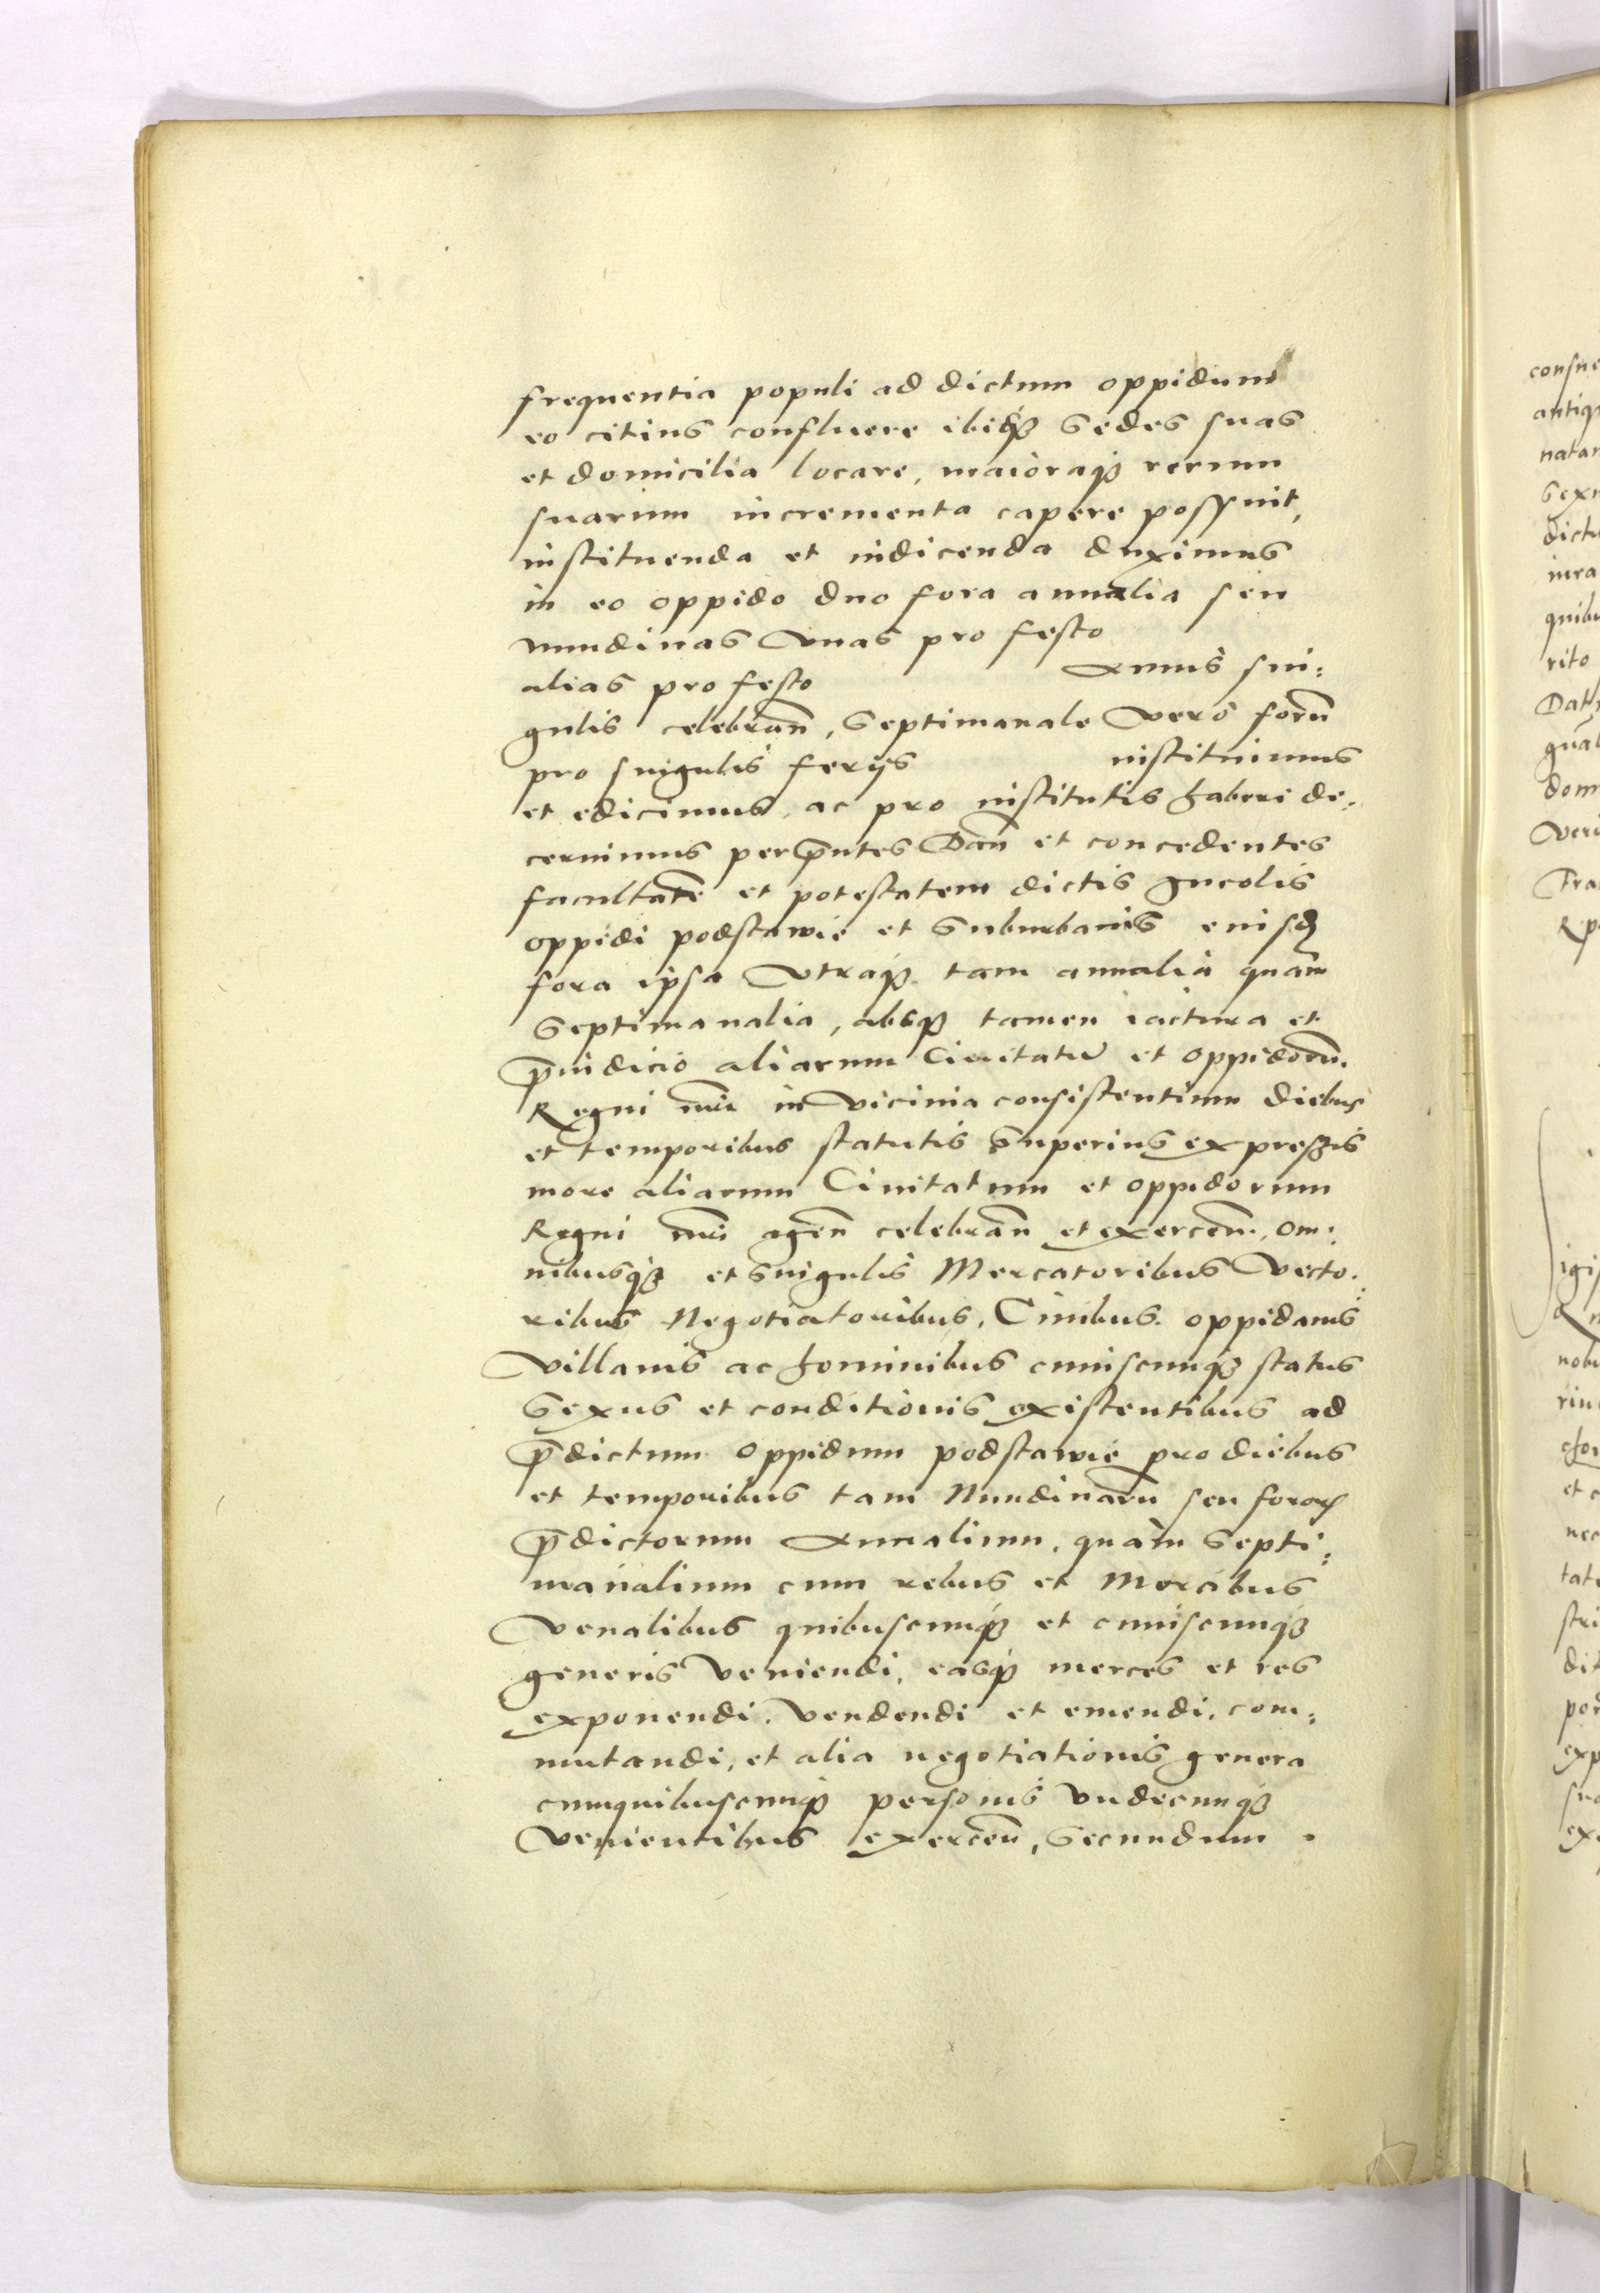 frequentia populi ad dictum oppidum
eo citius confluere ibiq3 Sedes suas
et domicilia locare, maioraq3 rerum
suarum incrementa capere possunt,
instituenda et indicenda duximus
in eo oppido duo fora annalia seu
nundinas Vnas pro festo
alias pro festo annis sin:
gulis celebran̄, Septimanale Vero forū
pro singulis ferijs instituimus
et edicimus, ac pro institutis haberi de:
cernimus per p̄ntes Dan̄ et concedentes
facultatē et potestatem dictis Incolis
oppidi podstawie et Suburbanis eiusd
fora ipsa Vtraq3 tam annalia quàm
Septimanalia, absq3 tamen iactura et
p̄iudicio aliarum Ciuitatū et Oppidorū
Regni nr̄i in Vicinia consistentium diebus
et temporibus statutis Superius expressis
more aliarum Ciuitatum et oppidorum
Regni nr̄i agen̄ celebran̄ et exercen̄, om:
nibusq3 et Singulis Mercatoribus Vecto:
ribus Negotiatoribus, Ciuibus oppidanis
Villanis ac hominibus cuiuscunq3 status
Sexus et conditionis existentibus ad
p̄dictum Oppidum podstawie pro diebus
et temporibus tam Nundinarū seu foror
p̄dictorum Annalium, quàm Septi:
manalium cum rebus et Mercibus
Venalibus quibuscunq3 et cuiuscunq3
generis Veniendi, easq3 merces et res
exponendi, Vendendi et emendi, com:
mutandi, et alia negotiationis genera
cumquibuscunq3 personis Vndecunq3
Venientibus exercen̄, Secundum